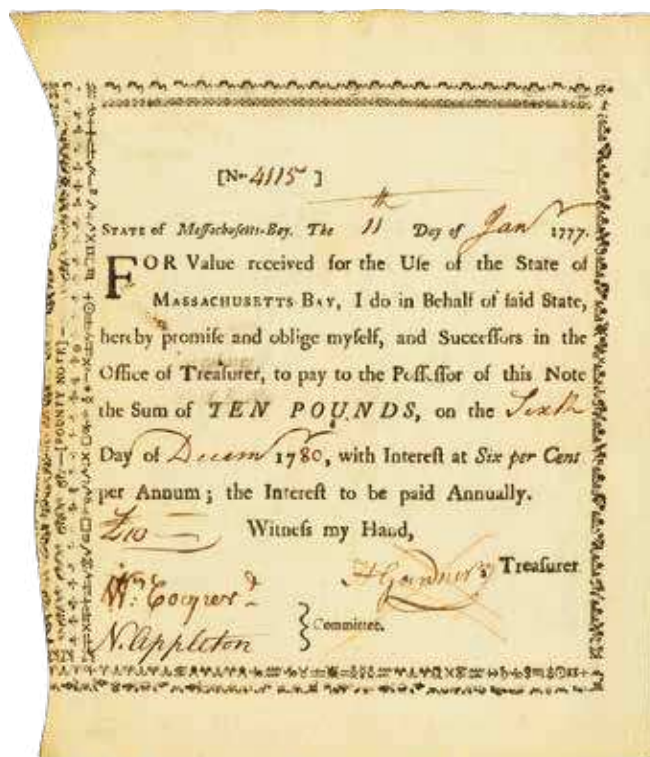 [No. 4115 ]
STATE of Massachusetts-Bay. The 11th Day of Janr 1777.
FOR Value received for the Use of the State of
MASSACHUSETTS BAY, I do in Behalf of said State,
hereby promise and oblige myself, and Successors in the
Office of Treasurer, to pay to the Possessor of this Note
the Sum of TEN POUNDS, on the Sixth
Day of Decemr 1780, with Interest at Six per Cent
per Annum; the Interest to be paid Annually.
£10 Witness my Hand,
H Gardner, Treasurer
Wm. Cooper
N. Appleton
} Committee.
[BOUNTY NOTE]